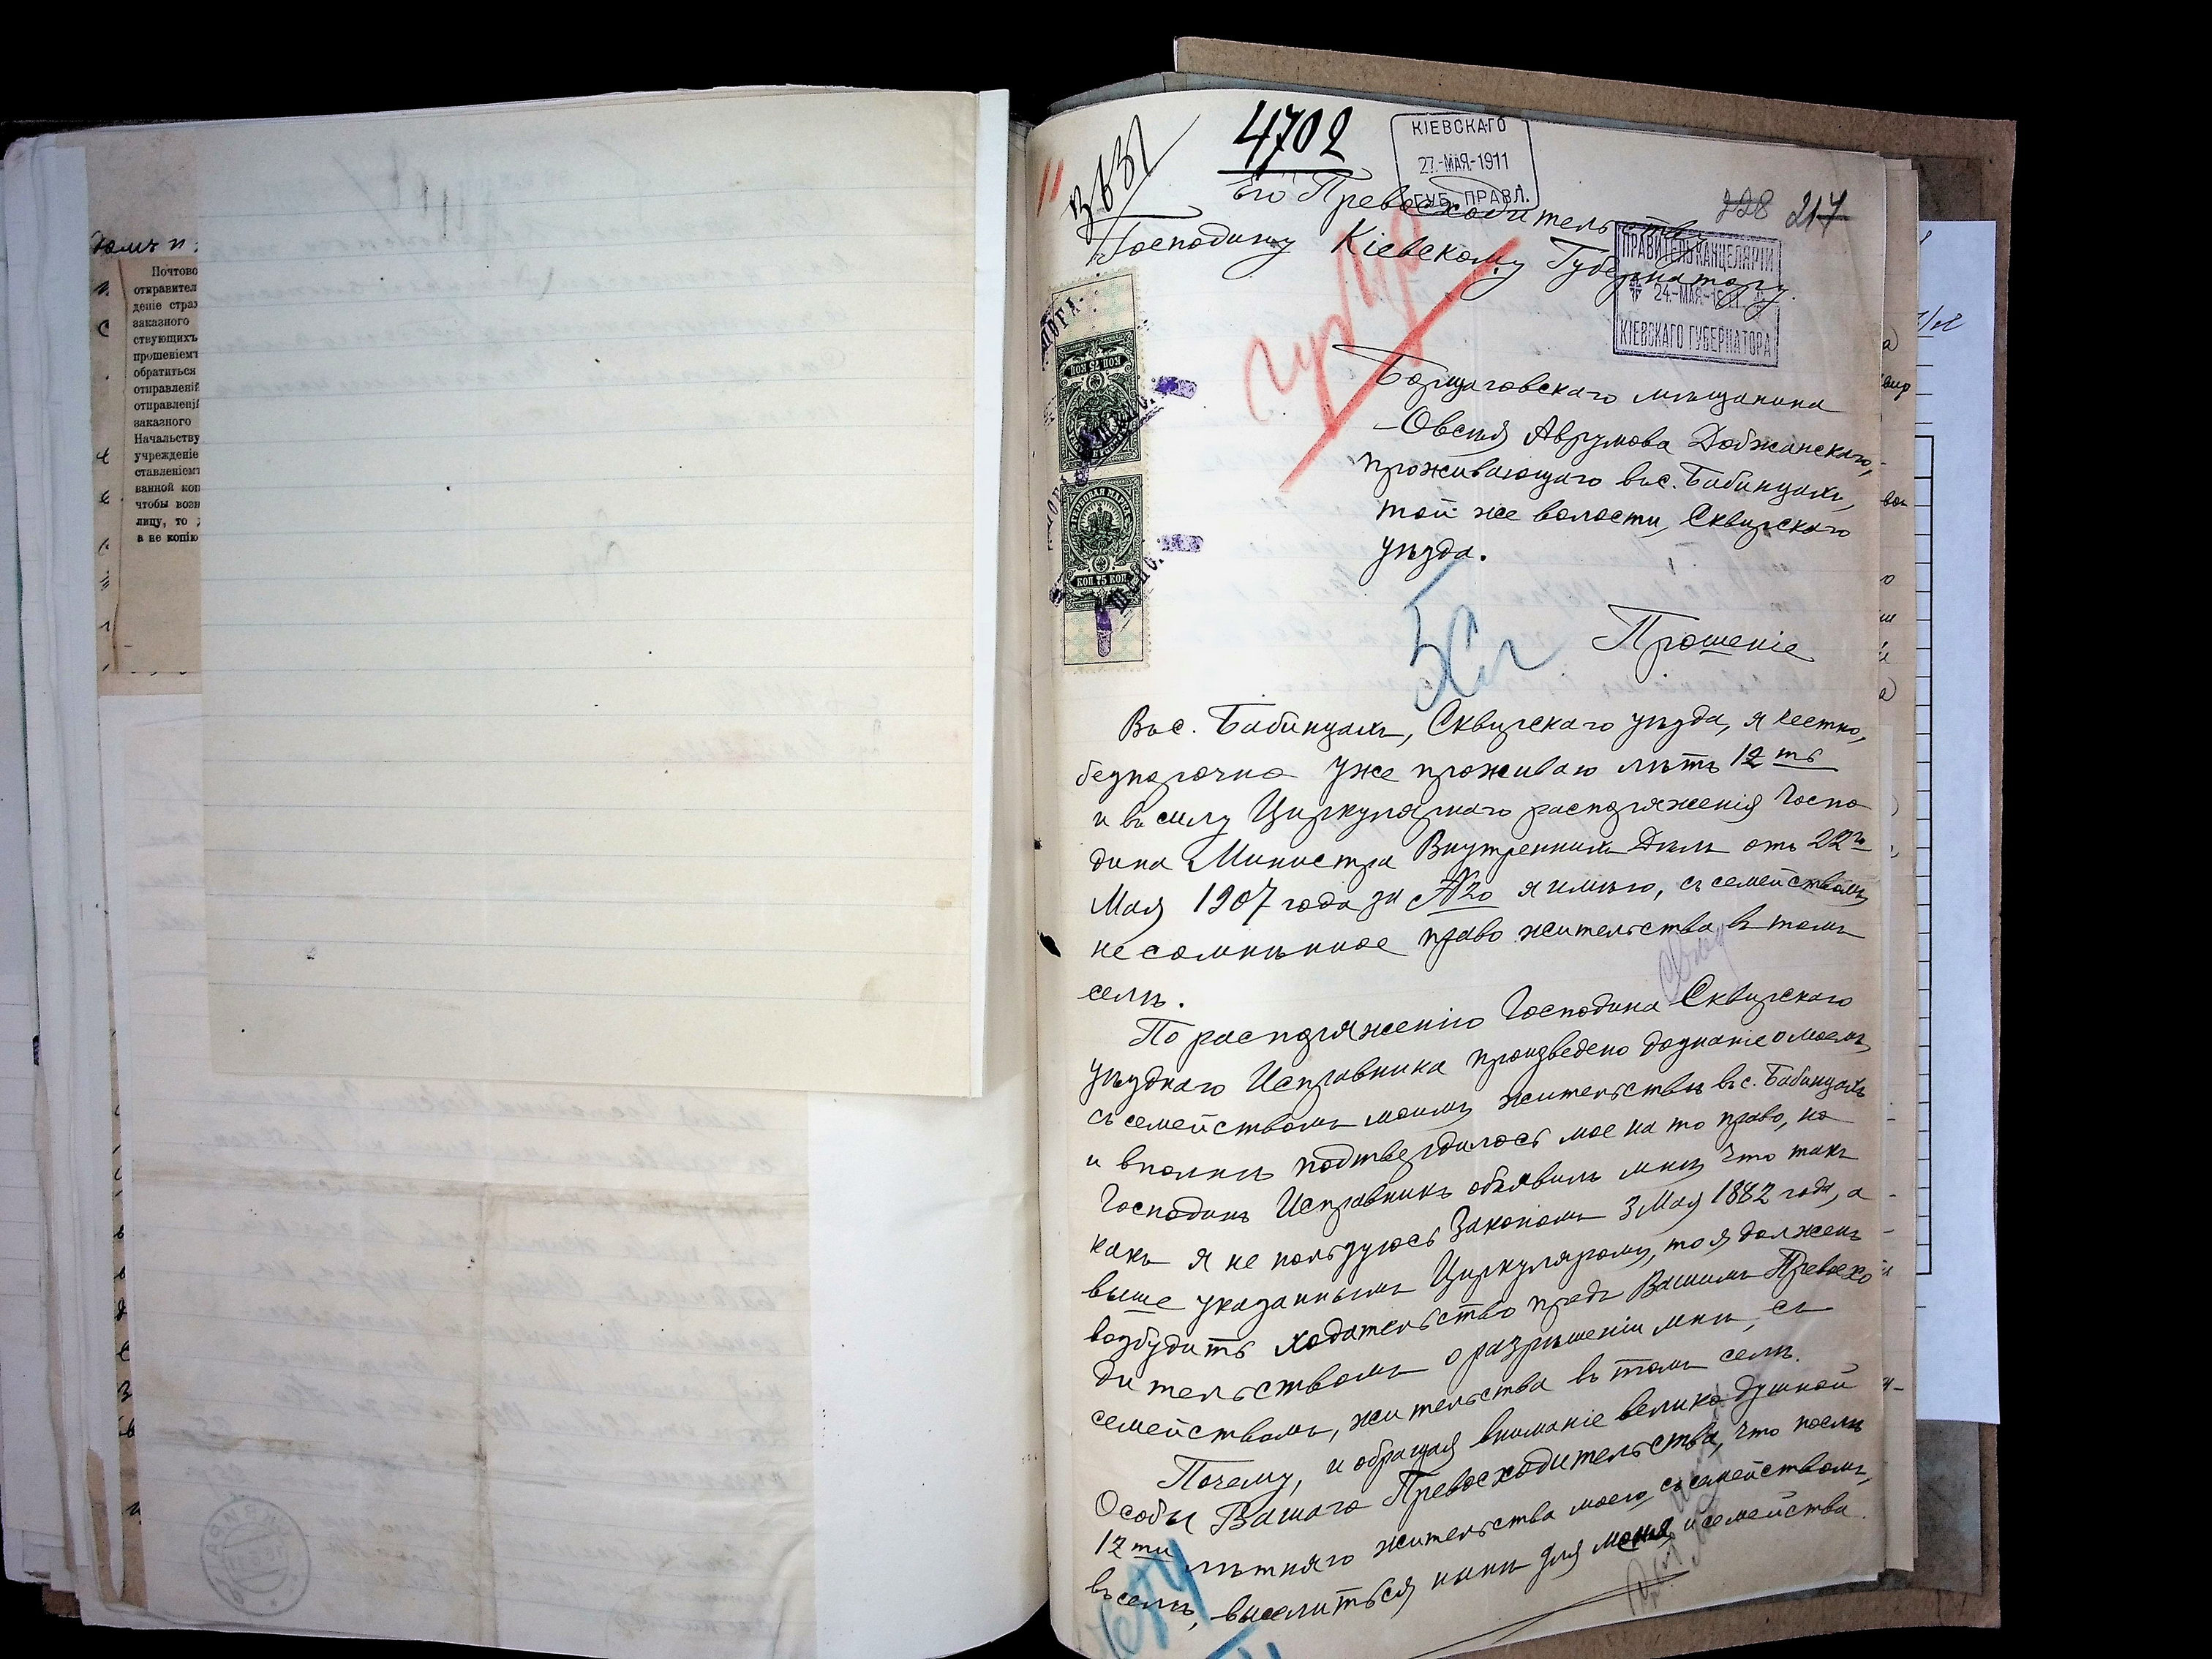 Почтово
отправител
деніе страх
заказного
ствующихъ
прошеніемъ
обратиться
отправленій
отправленій
заказного
Начальству
учрежденіе
ставленіемъ
ванной коп
чтобы возн
лицу, то
а не копію
4702
КІЕВСКАГО
27.-МАЯ-1911
ГУБ. ПРАВЛ.
228 217
Его Превосходительству
Господину Кіевскому Губернатору.
ПРАВИТЕЛЬ КАНЦЕЛЯРІИ
24.-МАЯ-1911
КІЕВСКАГО ГУБЕРНАТОРА
КОП 75 КОП
ГЕРБОВАЯ МАРКА
КОП 75 КОП
Борщаговскаго мѣщанина
Овсѣя Аврумова Добжанскаго,
проживающаго въ с. Бабинцахъ,
той же волости, Сквирскаго
уѣзда.
Прошеніе
Въ с. Бабинцахъ, Сквирскаго уѣзда, я честно,
безпорочно уже проживаю лѣтъ 12ть
и въ силу Циркулярнаго распоряженія Госпо
дина Министра Внутреннихъ Дѣлъ отъ 22го
Мая 1907 года за №20 я имѣю, съ семействомъ,
несомнѣнное право жительства въ томъ
селѣ.
По распоряженію Господина Сквирскаго
уѣзднаго Исправника произведено дознаніе о моемъ,
съ семействомъ моимъ жительствѣ въ с. Бабинцахъ
и вполнѣ подтвердилось мое на то право, но
Господинъ Исправникъ объявилъ мнѣ, что такъ
какъ я не пользуюсь Закономъ 3 Мая 1882 года, а
выше указаннымъ Циркуляромъ, то я долженъ
возбудить ходательство предъ Вашимъ Превосхо
дительствомъ о разрѣшеніи мнѣ, съ
семействомъ, жительства въ томъ селѣ.
Почему, и обращая вниманіе великодушной
Особы Вашаго Превосходительства, что послѣ
12ти лѣтняго жительства моего, съ семействомъ,
въ селѣ, выселиться нынѣ для меня и семейства